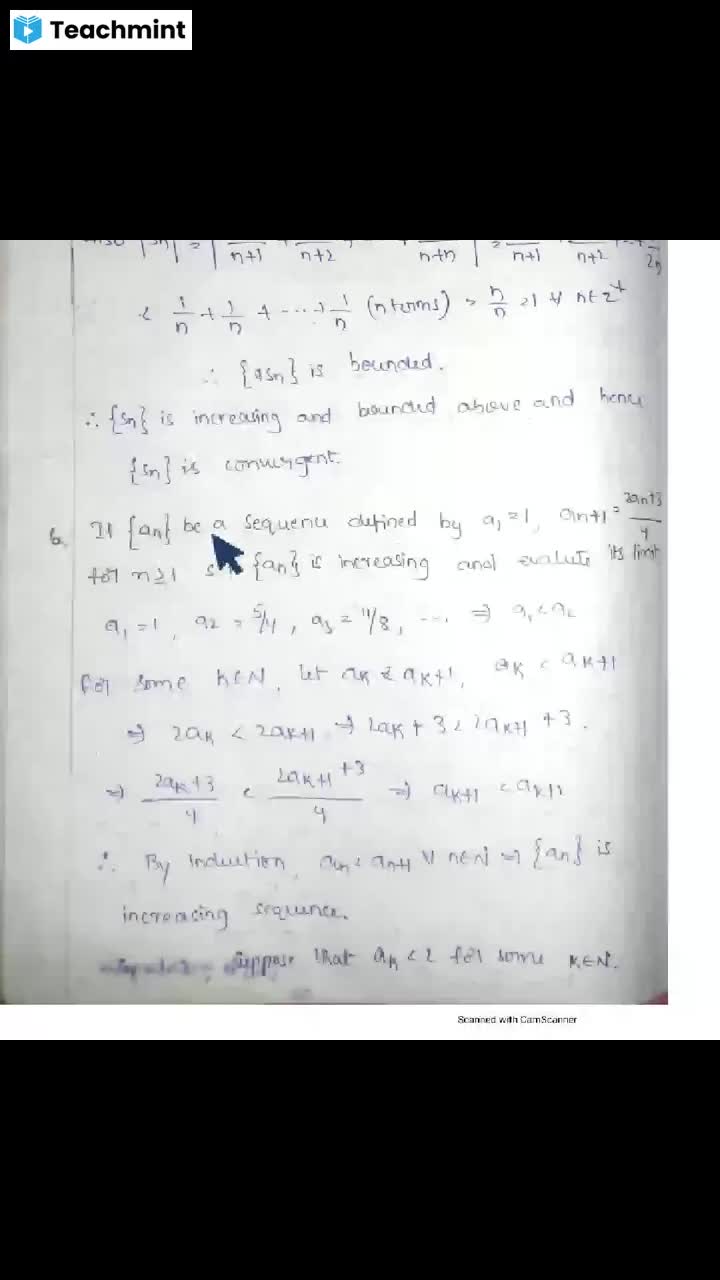 Teachmint
n+1 n+2 n+n n+1 n+2 2n
< 1/n + 1/n + ---- + 1/n (n terms) = n/n = 1 ∀ n∈Z+
∴ {sn} is bounded.
∴ {sn} is increasing and bounded above and hence
{sn} is convergent.
6. If {an} be a sequence defined by a1 = 1, an+1 = 2an+3/4
for n≥1 {an} is increasing and evalute its limit
a1 = 1, a2 = 5/4, a3 = 11/8, ---- ⇒ a1 < a2
For some K∈N, let aK < aK+1, aK < aK+1
⇒ 2aK < 2aK+1 ⇒ 2aK + 3 < 2aK+1 + 3.
⇒ 2aK+3/4 < 2aK+1+3/4 ⇒ aK+1 < aK+2
∴ By Induction, an < an+1 ∀ n∈N ⇒ {an} is
increasing sequence.
Suppose that aK < 2 for some K∈N.
Scanned with CamScanner